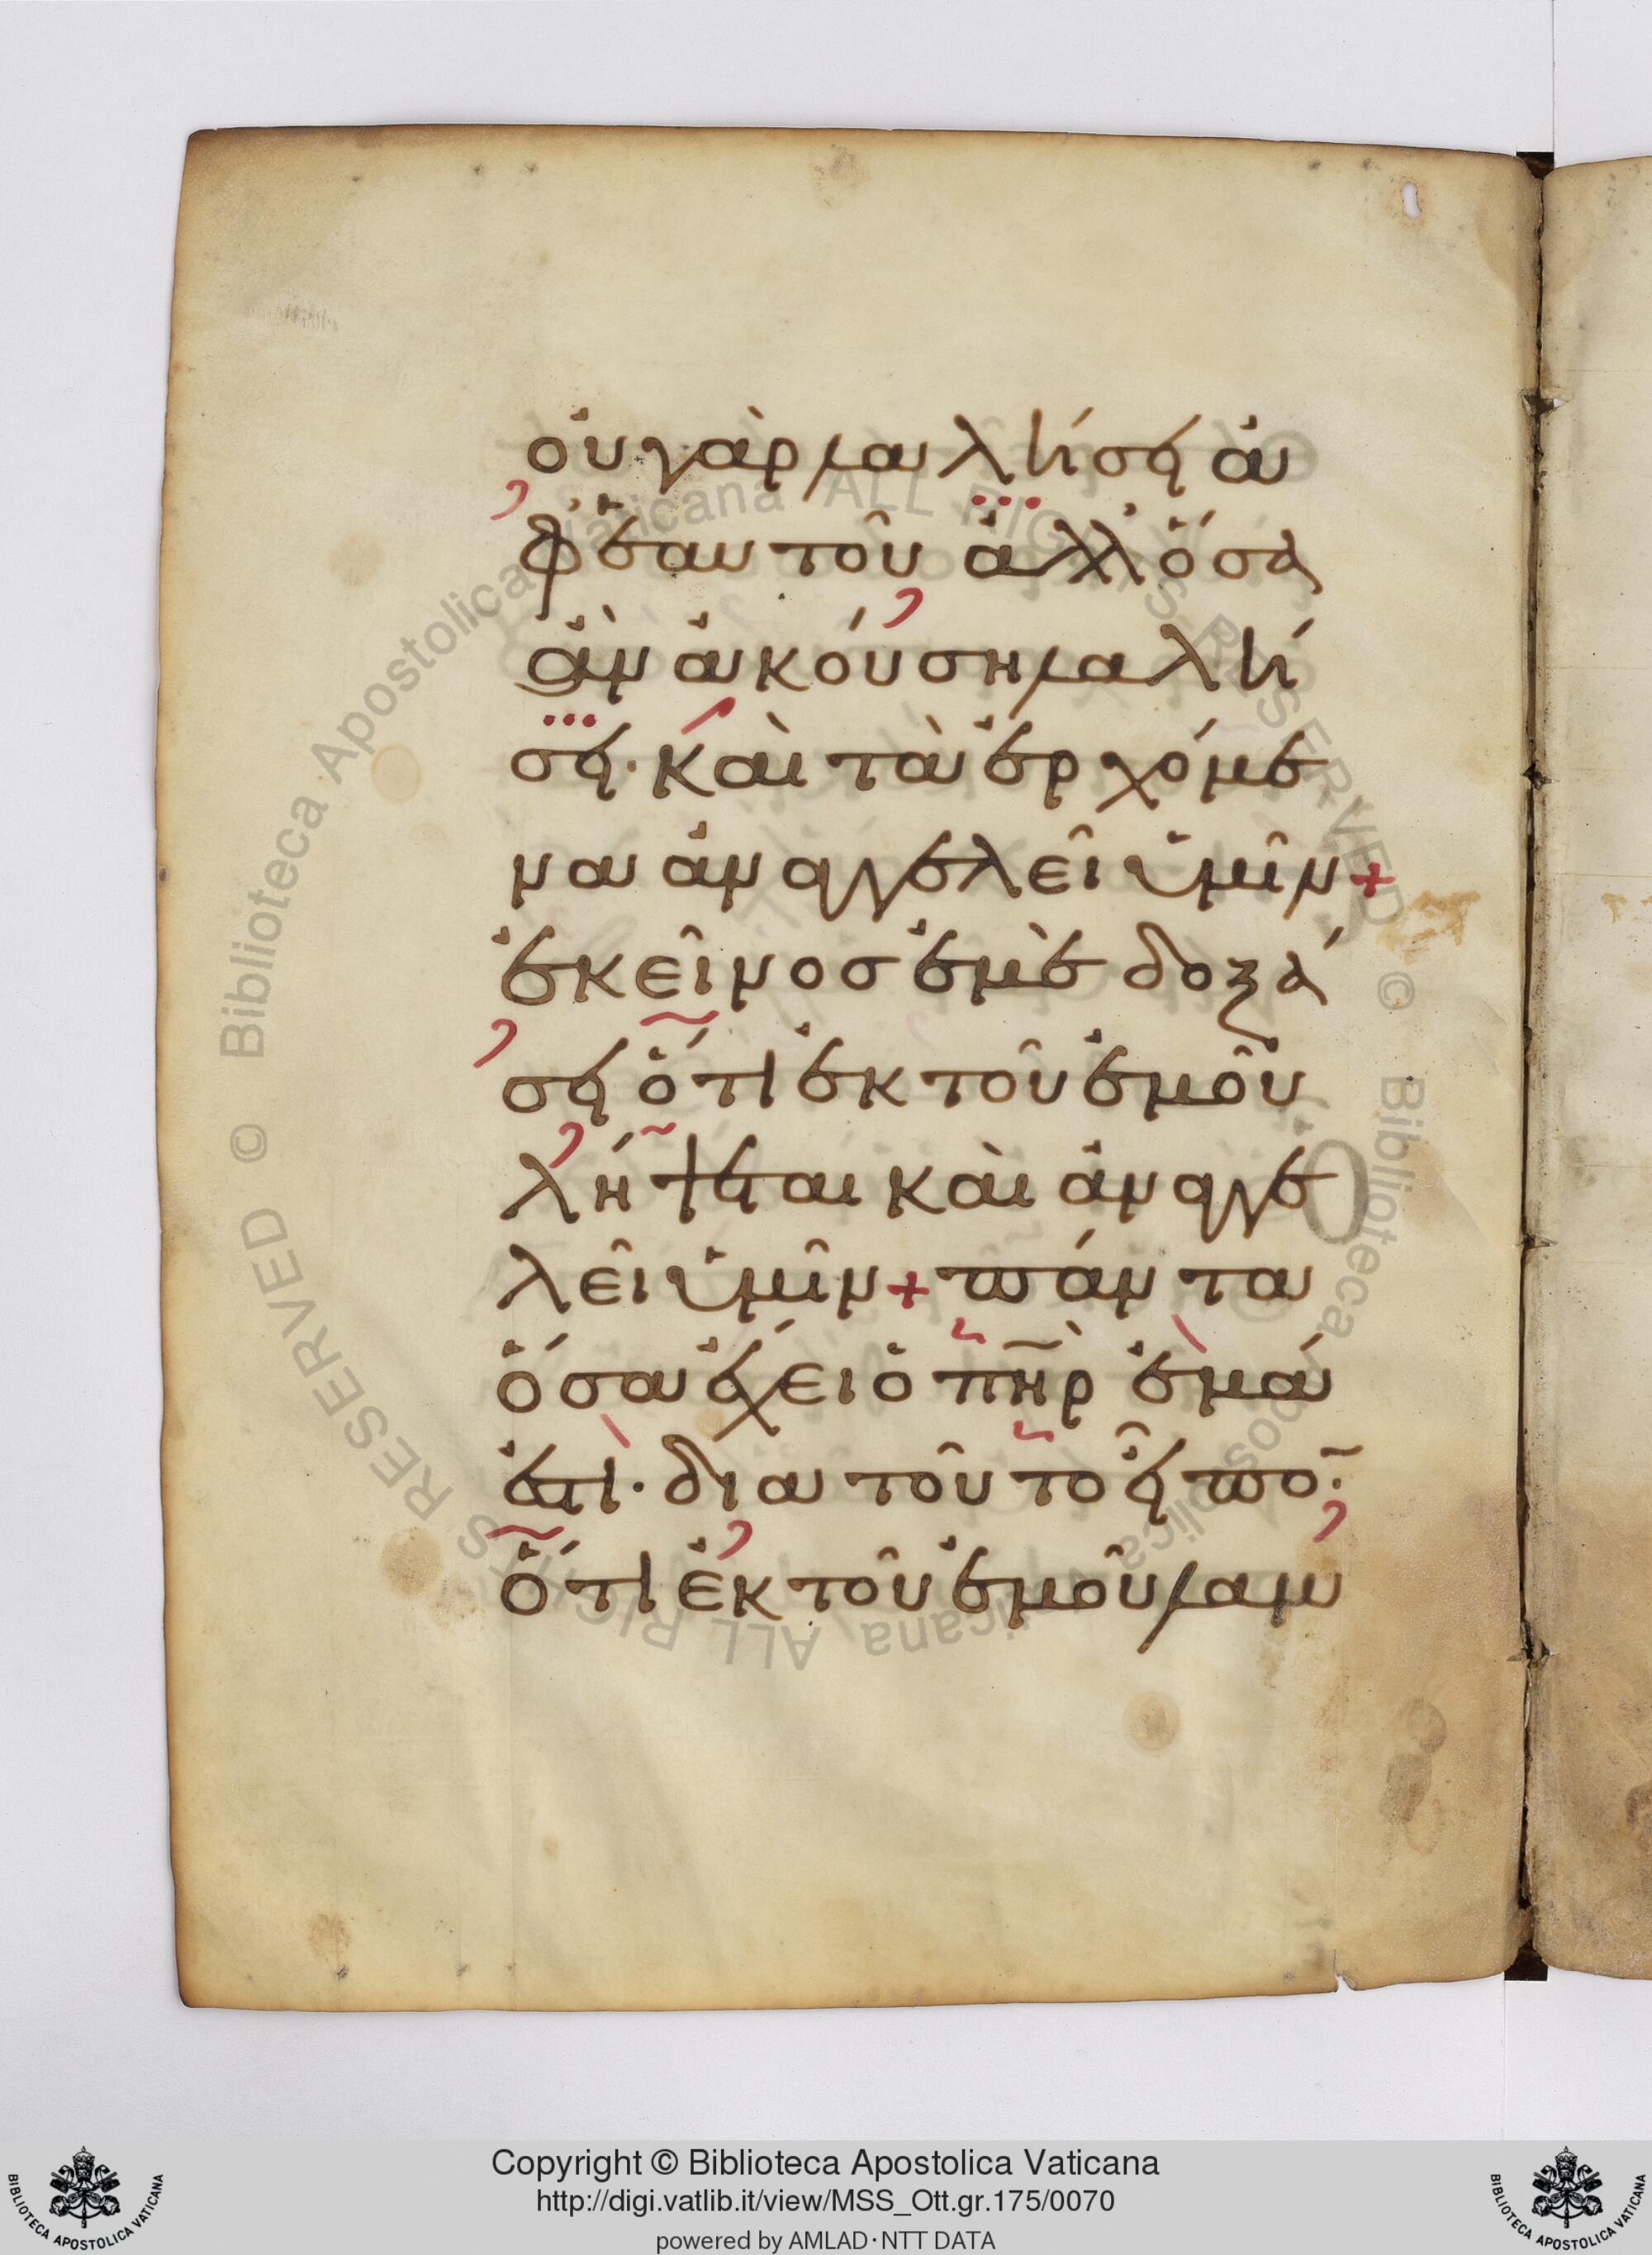 οὐ γὰρ λαλήσει ἀ
φ' ἑαυτοῦ ἀλλ' ὅσα
ἂν ἀκούση λαλή
σει· καὶ τὰ ἐρχόμε
να ἀναγγελεῖ ὑμῖν +
ἐκεῖνος ἐμὲ δοξά
σει ὅτι ἐκ τοῦ ἐμοῦ
λήψεται καὶ ἀναγγε
λεῖ ὑμῖν + πάντα
ὅσα ἔχει ὁ πηρ ἐμά
ἐστι· δια τοῦτο εἶπο̃·
ὅτι ἐκ τοῦ ἐμοῦ λαμ
Biblioteca Apostolica Vaticana ALL RIGHTS RESERVED ©
Biblioteca Apostolica Vaticana ALL RIGHTS RESERVED ©
Copyright © Biblioteca Apostolica Vaticana
http://digi.vatlib.it/view/MSS_Ott.gr.175/0070
powered by AMLAD·NTT DATA
BIBLIOTECA APOSTOLICA VATICANA
BIBLIOTECA APOSTOLICA VATICANA